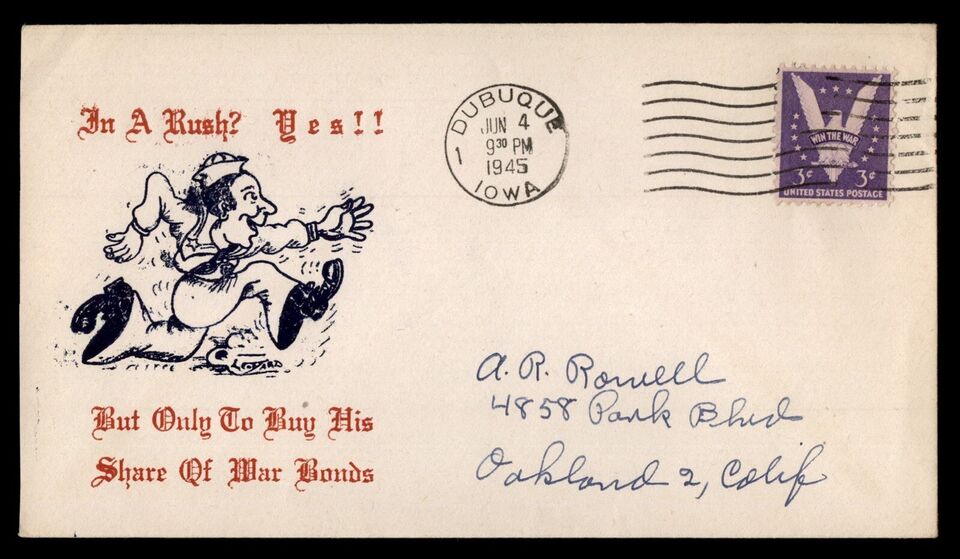 In A Rush? Yes!!
But Only To Buy His
Share Of War Bonds
DUBUQUE
JUN 4
9 30 PM
1945
1
IOWA
WIN THE WAR
3¢ 3¢
UNITED STATES POSTAGE
A. R. Rowell
4858 Park Blvd
Oakland 2, Calif